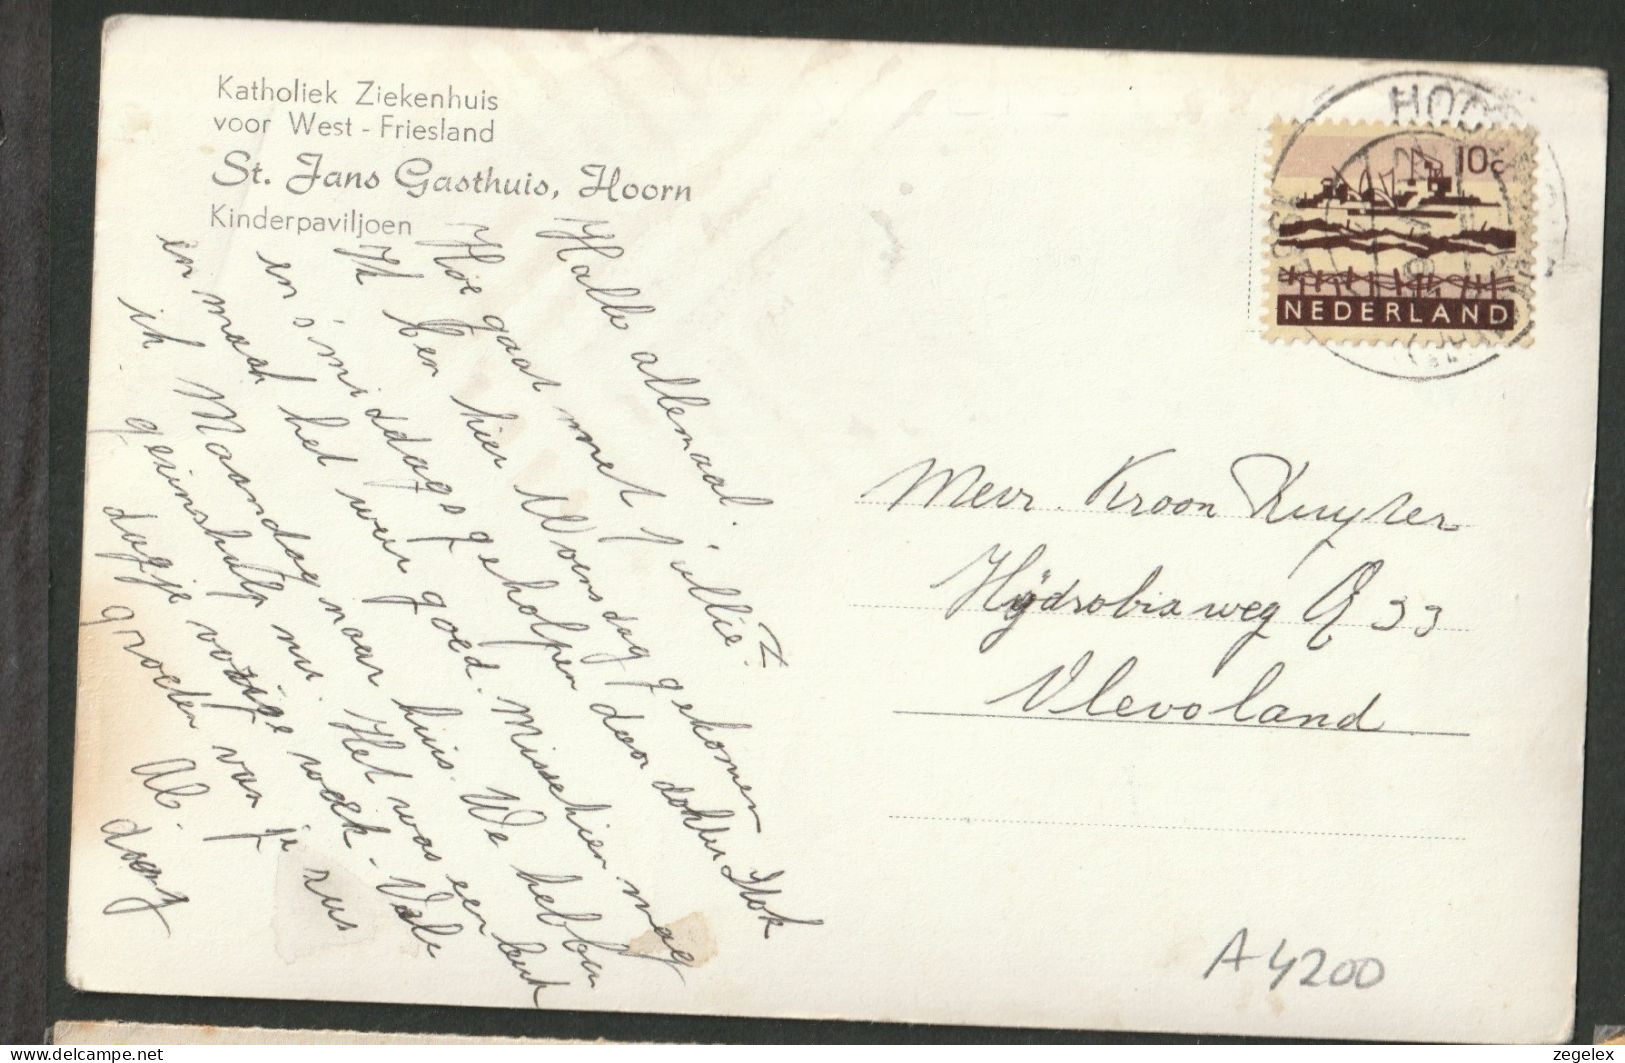 Katholiek Ziekenhuis
voor West - Friesland
St. Jans Gasthuis, Hoorn
Kinderpaviljoen
Hallo allemaal.
Hoe gaat met jullie?
Ik ben hier Woensdag gekomen
en s'middags geholpen door dokter Stok
in maar het weer goed. Misschien mag
ik Maandag naar huis. We hebben
gezinshulp nu. Het was een leuk
dagje vorige week. Vele
groeten van je zus
Ab.
daag
HOO
10c
NEDERLAND
Mevr. Kroon Ruyter
Hydrobiaweg Q 33
Vlevoland
A4200
delcampe.net
zegelex